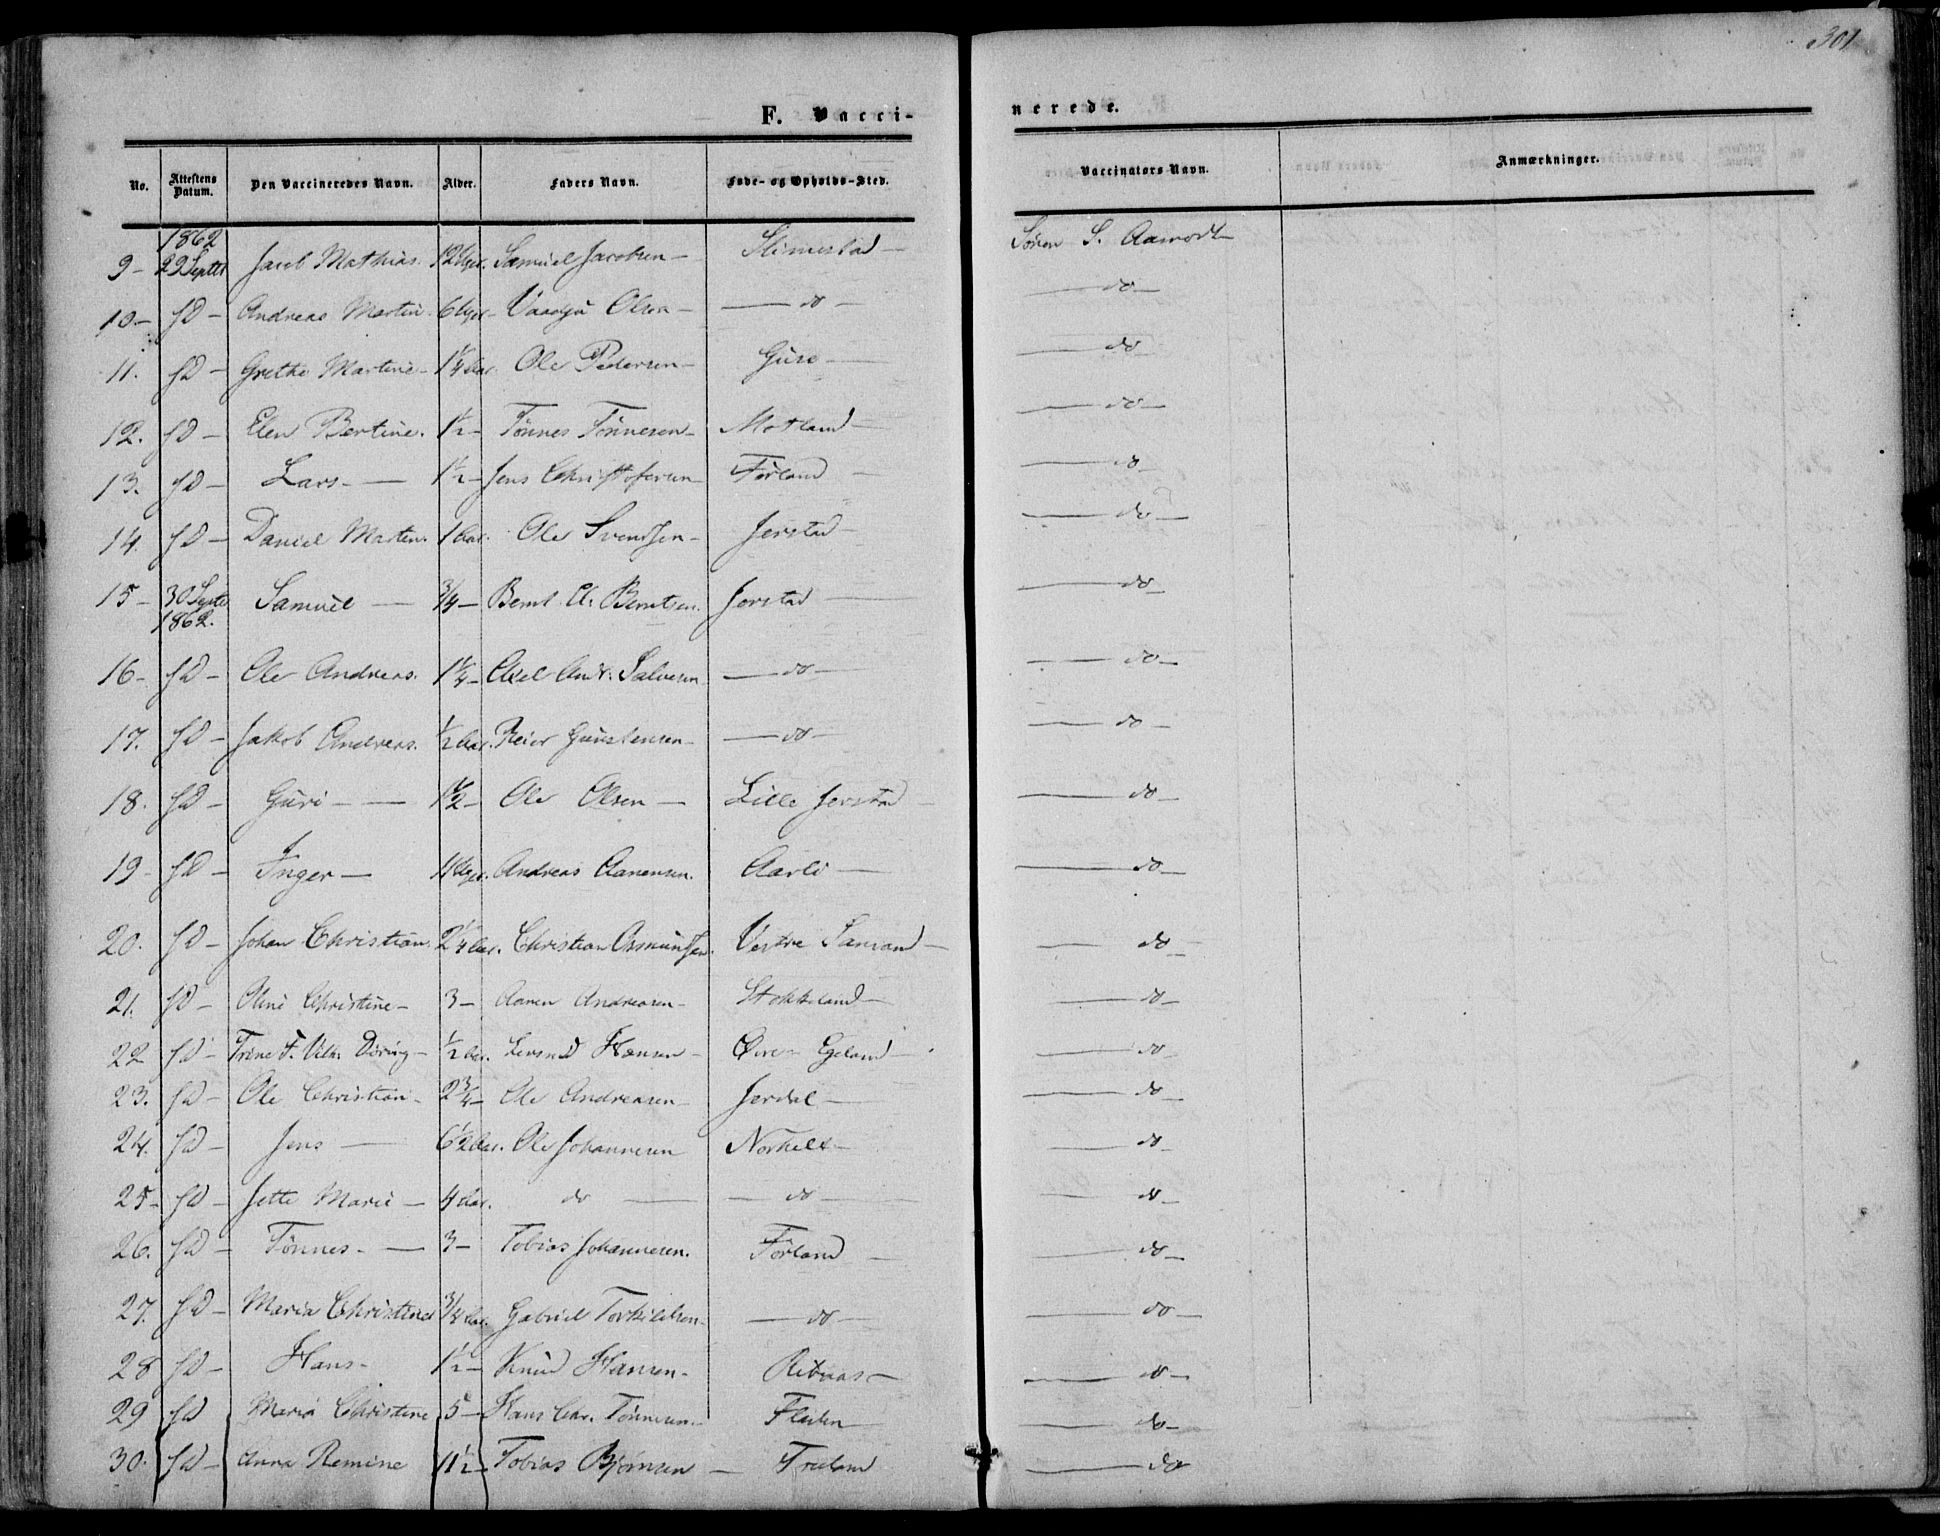 301
F. Vaccinerede.
No. | Attestens Datum. | Den Vaccineredes Navn. | Alder. | Faders Navn. | Føde- og Opholds-Sted. | Vaccinators Navn. | Anmærkninger.
9- | 1862 29 Septbr | Jacob Mathias. | 12 Uger. | Samuel Jacobsen- | Slimestad- | Sören S. Aamodt-
10- | SD- | Andreas Martin. | 6 Uger- | Olsen- | -do- | -do-
11. | SD- | Grethe Martine- | 1¼ Aar. | Ole Pedersen- | Guse- | -do-
12. | SD- | Elen Bertine. | 1½- | Tönnes Tönnesen- | Motland- | -do-
13. | SD- | Lars- | 1½- | Jens Christofersen- | Förland- | -do-
14. | SD- | Daniel Martin. | 1 Aar. | Ole Svendsen- | Jerstad- | -do-
15- | 30 Septbr 1862. | Samuel- | ¾- | Bernt A. Berntsen. | Jerstad- | -do-
16- | SD- | Ole Andreas. | 1¼- | Axel And. Salvesen | -do- | -do-
17. | SD- | Jakob Andreas. | ½ Aar. | Reier Gunstensen- | -do- | -do-
18. | SD- | Guri- | 1½- | Ole Olsen- | Lille Jerstad- | -do-
19- | SD- | Inger- | 11 Uger. | Andreas Aanensen. | Aarli- | -do-
20. | SD- | Johan Christian. | 2¼ Aar. | Christian Osmundsen. | Vestre- | -do-
21. | SD- | Oline Christine- | 3- | Aanen Andreasen- | Stokkeland- | -do-
22 | SD- | Trine F. Vilh. Döring- | ½ Aar. | Hansen- | Övre Egeland- | -do-
23. | SD- | Ole Christian- | 2¾- | Ole Andreasen- | Jerdal- | -do-
24. | SD- | Jens- | 6½ Aar. | Ole Johannesen | -do-
25- | SD- | Jette Marie- | 4 Aar. | do- | -do- | -do-
26. | SD- | Tönnes- | 3- | Tobias Johannesen. | Förland- | -do-
27. | SD- | Maria Christine | ¾ Aar. | Gabriel Torkildsen- | -do- | -do-
28 | SD- | Hans- | 1½- | Knud Hansen- | -do-
29 | SD | Maria Christine | 5- | Hans Chr. Tönnesen- | -do-
30. | SD- | Anna Remine | 11½- | Tobias Bjørnsen- | -do